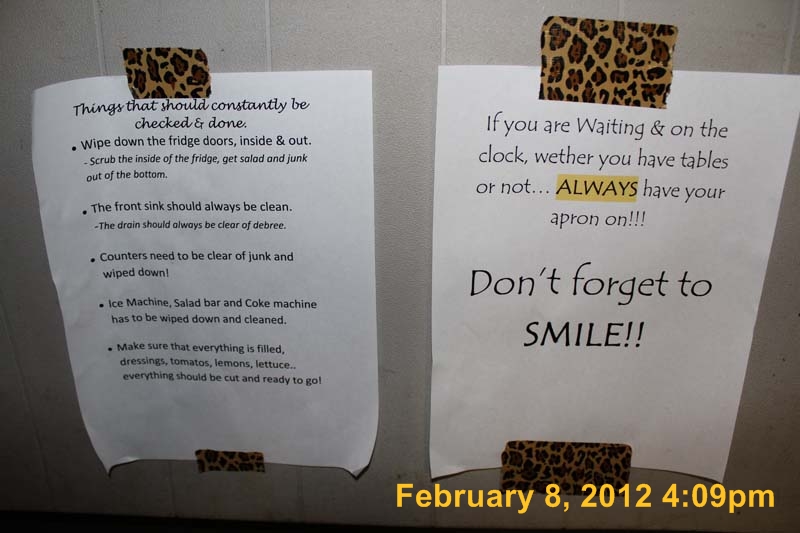 Things that should constantly be
checked & done.
• Wipe down the fridge doors, inside & out.
- Scrub the inside of the fridge, get salad and junk
out of the bottom.
• The front sink should always be clean.
-The drain should always be clear of debree.
• Counters need to be clear of junk and
wiped down!
• Ice Machine, Salad bar and Coke machine
has to be wiped down and cleaned.
• Make sure that everything is filled,
dressings, tomatos, lemons, lettuce..
everything should be cut and ready to go!
If you are Waiting & on the
clock, wether you have tables
or not... ALWAYS have your
apron on!!!
Don't forget to
SMILE!!
February 8, 2012 4:09pm